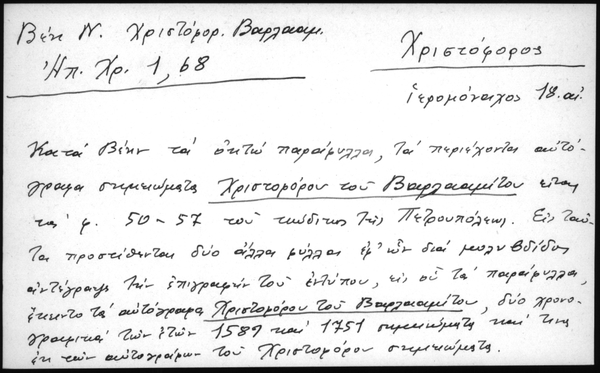 Βέης Ν. Χριστόφορ. Βαρλααμ.
Ἠπ. Χρ. 1, 68
Χριστόφορος
ἱερομόναχος 18. αἰ.
Κατά Βέην τά ὀκτώ παράφυλλα, τά περιέχοντα αὐτό-
γραφα σημειώματα Χριστοφόρου τοῦ Βαρλααμίτου εἶναι
τά φ. 50-57 τοῦ κώδικος τῆς Πετρουπόλεως. Εἰς ταῦ-
τα προστίθενται δύο ἄλλα φύλλα ἐφ' ὧν διά μολυβδίδος
ἀντέγραψε τήν ἐπιγραφήν τοῦ ἐντύπου, εἰς οὗ τά παράφυλλα,
ἔκειντο τά αὐτόγραφα Χριστοφόρου τοῦ Βαρλααμίτου, δύο χρονο-
γραφικά τῶν ἐτῶν 1589 καί 1751 σημειώματα καί τινα
ἐκ τῶν αὐτογράφων τοῦ Χριστοφόρου σημειώματα.